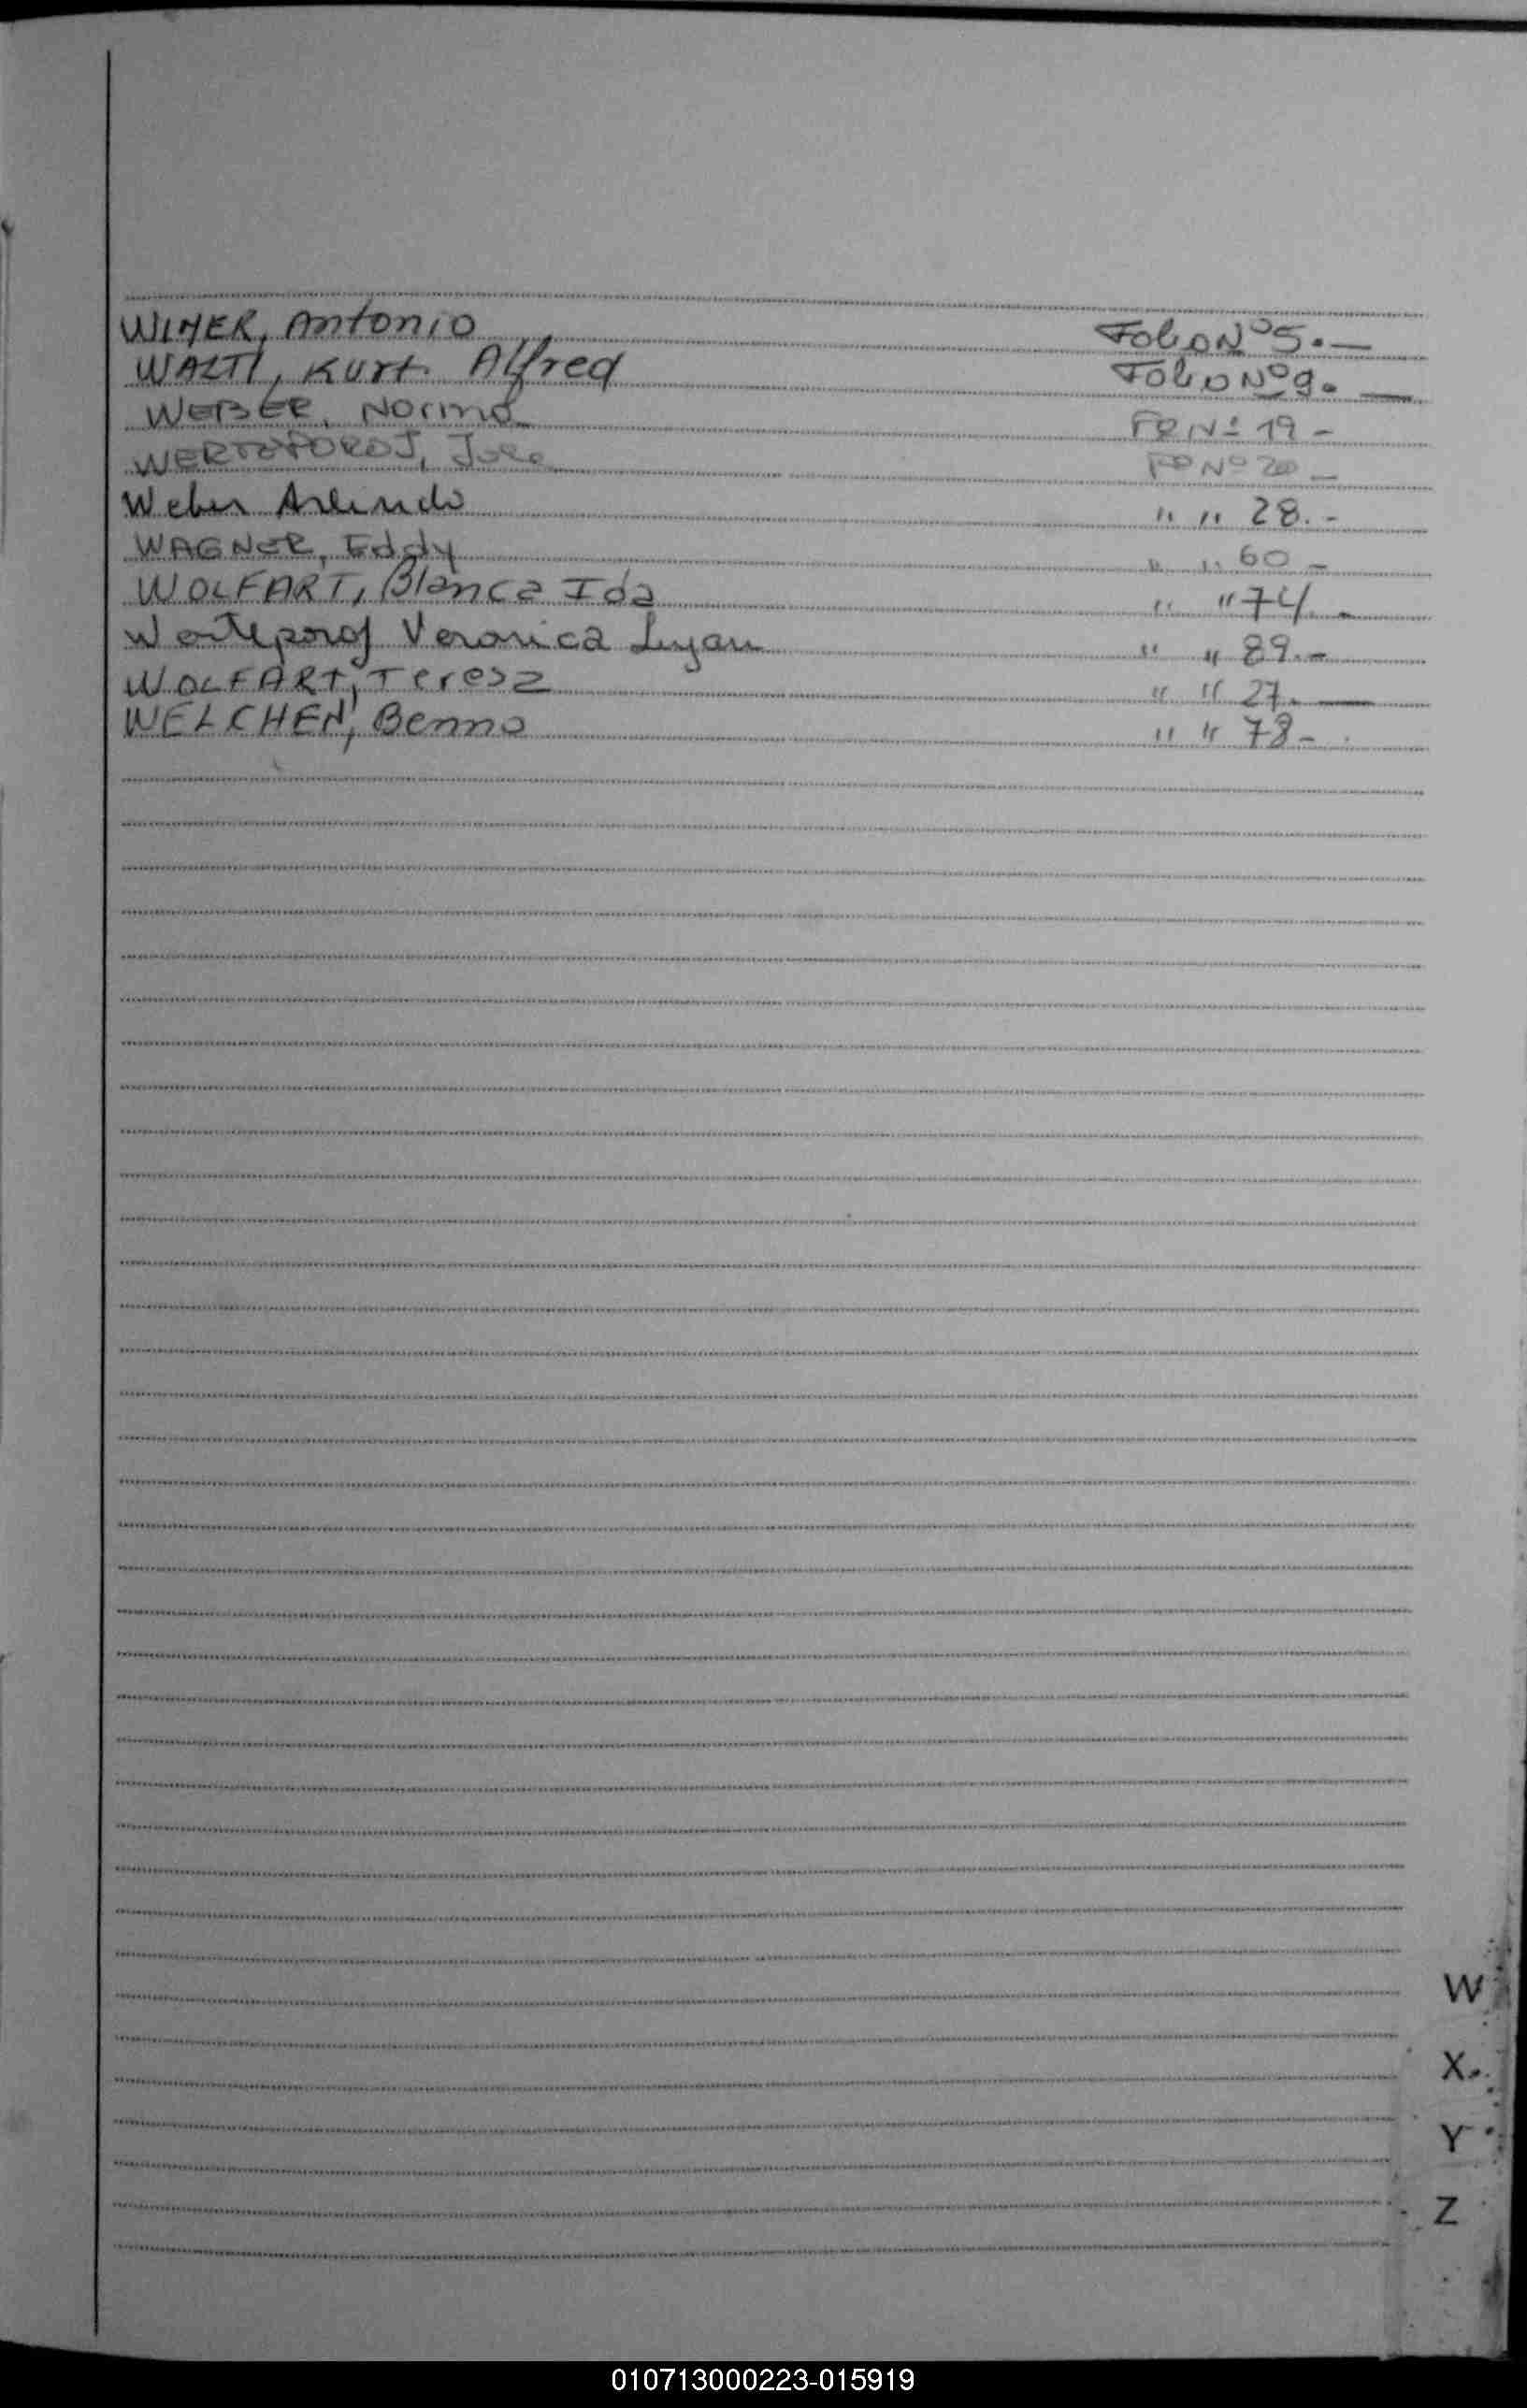 WINER, Antonio Folio Nº 5.—
WALTI, Kurt. Alfred Folio Nº 9. —
WEBER, Norma Fº Nº 19 -
Fº Nº 20 —
Weber Arlindo " " 28. -
WAGNER, Eddy " " 60 -
WOLFART, Blanca Ida " " 74. -
Veronica Lujan " " 89. -
WOLFART, Teresa " " 27. —
WELCHEN, Benno " " 78 -
W
X
Y
Z
010713000223-015919